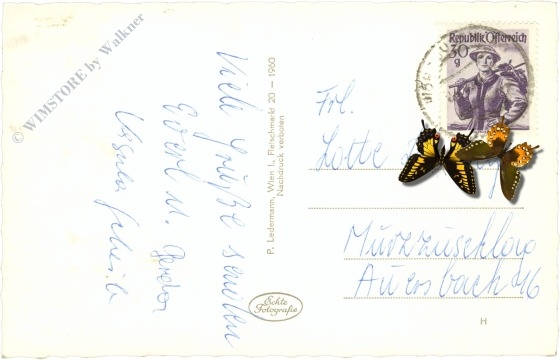 © WIMSTORE by Walkner
Viele Grüße senden
Ursula
P. Ledermann, Wien I., Fleischmarkt 20 – 1960
Nachdruck verboten
Echte
Fotografie
Republik Österreich
30
g
Frl.
Lotte
Mürzzuschlag
Auersbach 16
H